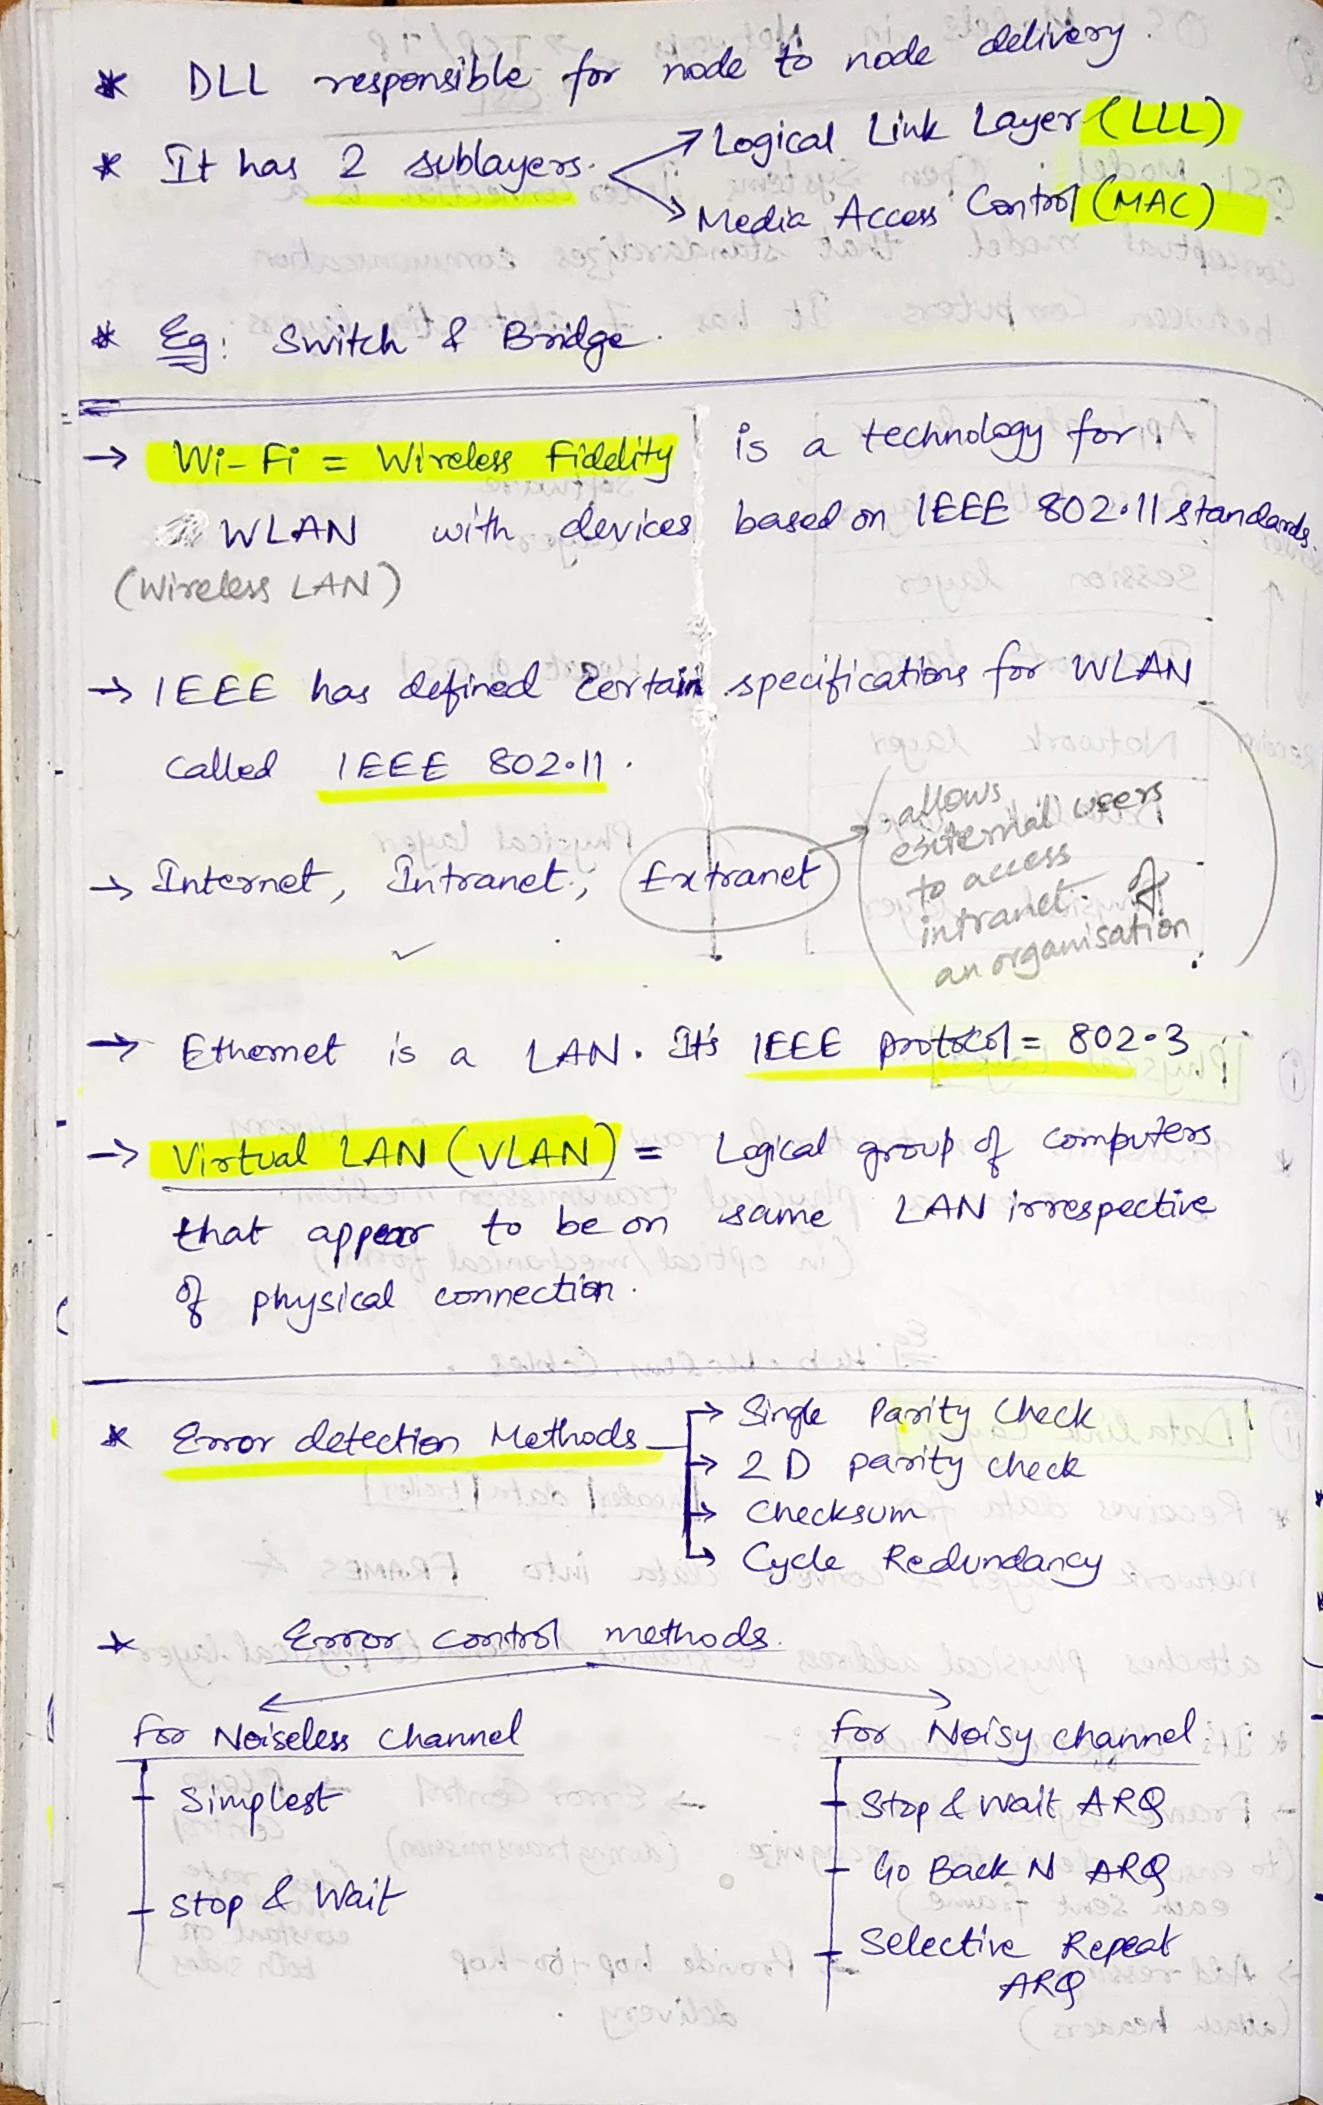 * DLL responsible for node to node delivery.
* It has 2 sublayers. → Logical Link Layer (LLL)
→ Media Access Control (MAC)
* Eg: Switch & Bridge.
→ Wi-Fi = Wireless Fidelity is a technology for
WLAN with devices based on IEEE 802.11 standards.
(Wireless LAN)
→ IEEE has defined certain specifications for WLAN
called IEEE 802.11.
→ Internet, Intranet, Extranet
allows
external users
to access
intranet of
an organisation
→ Ethernet is a LAN. It's IEEE protocol = 802.3
→ Virtual LAN (VLAN) = Logical group of computers
that appear to be on same LAN irrespective
of physical connection.
* Error detection Methods → Single Parity Check
→ 2D parity check
→ Checksum
→ Cycle Redundancy
* Error control methods.
For Noiseless Channel
Simplest
Stop & Wait
For Noisy channel
Stop & Wait ARQ
Go Back N ARQ
Selective Repeat
ARQ